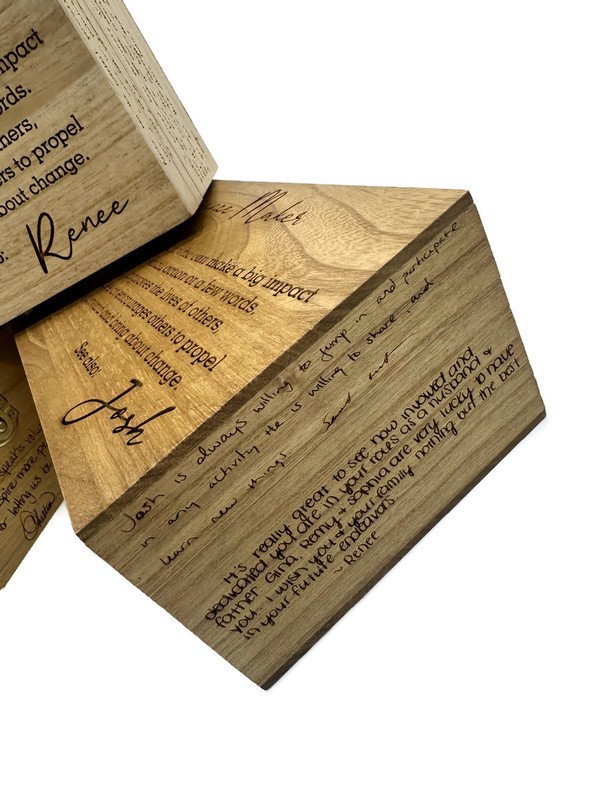 mpact
ords.
hers,
ers to propel
bout change.
Renee
Maker
can make a big impact
or a few words
the lives of others
encourages others to propel
and bring about change.
See also:
Josh
Josh is always willing to jump in and participate
in any activity. He is willing to share and
learn new things
It's really great to see how involved and
dedicated you are in your roles as a husband &
father. Gina, Remy & Sophia are very lucky to have
you. I wish you & your family nothing but the best
in your future endeavors
~ Renee